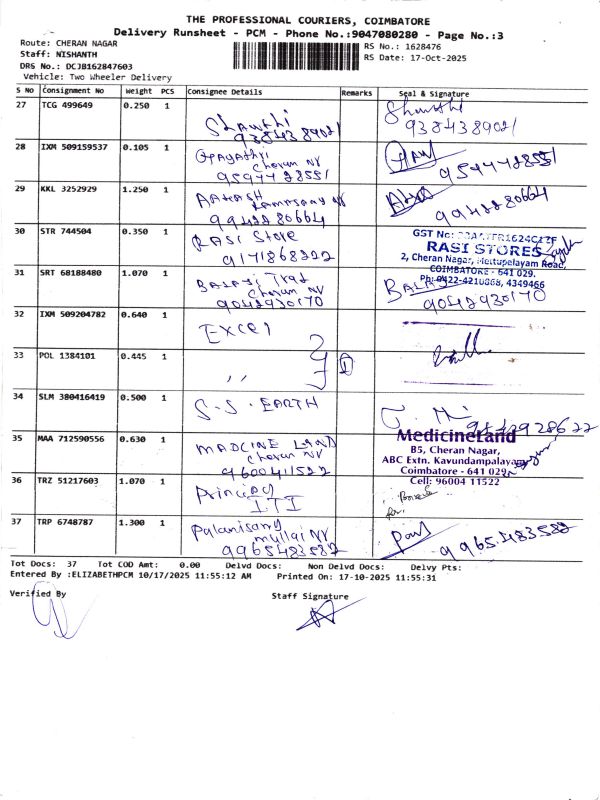 THE PROFESSIONAL COURIERS, COIMBATORE
Delivery Runsheet - PCM - Phone No.:9047080280 - Page No.:3
Route: CHERAN NAGAR
Staff: NISHANTH
DRS No.: DCJB162847603
Vehicle: Two Wheeler Delivery
RS No.: 1628476
RS Date: 17-Oct-2025
S No Consignment No Weight PCS Consignee Details Remarks Seal & Signature
27 TCG 499649 0.250 1
Shanthi
9384389021
Shanthi
9384389021
28 IXM 509159537 0.105 1
Gayathri
Cheran Nr
9597728551
9597728551
29 KKL 3252929 1.250 1
AAKASH
9942280664
9942280664
30 STR 744504 0.350 1
RASI Store
9171868222
GST No:
RASI STORES
2, Cheran Nagar, Mettupalayam Road,
COIMBATORE - 641 029.
Ph: 0422-4210868, 4349466
31 SRT 68188480 1.070 1
Balaji
Cheran Nr
9042930170
BALAJI
9042930170
32 IXM 509204782 0.640 1
Excel
33 POL 1384101 0.445 1
,,
34 SLM 380416419 0.500 1
S.S. EARTH
35 MAA 712590556 0.630 1
MADCINE LAND
Cheran Nr
9600411522
MedicineLand
B5, Cheran Nagar,
ABC Extn. Kavundampalayam
Coimbatore - 641 029.
Cell: 96004 11522
36 TRZ 51217603 1.070 1
ITI
37 TRP 6748787 1.300 1
Palanisamy
mullai Nr
9965483582
9965483582
Tot Docs: 37 Tot COD Amt: 0.00 Delvd Docs: Non Delvd Docs: Delvy Pts:
Entered By :ELIZABETHPCM 10/17/2025 11:55:12 AM Printed On: 17-10-2025 11:55:31
Verified By
Staff Signature